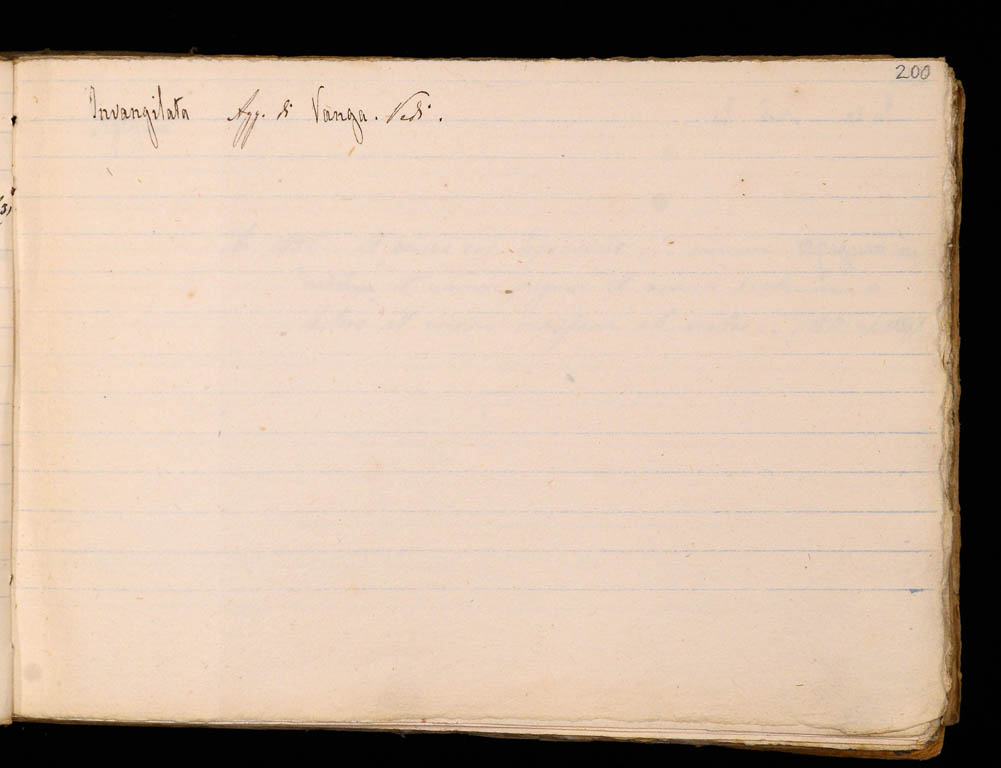 200
Invangilata Agg. di Vanga. Vedi.